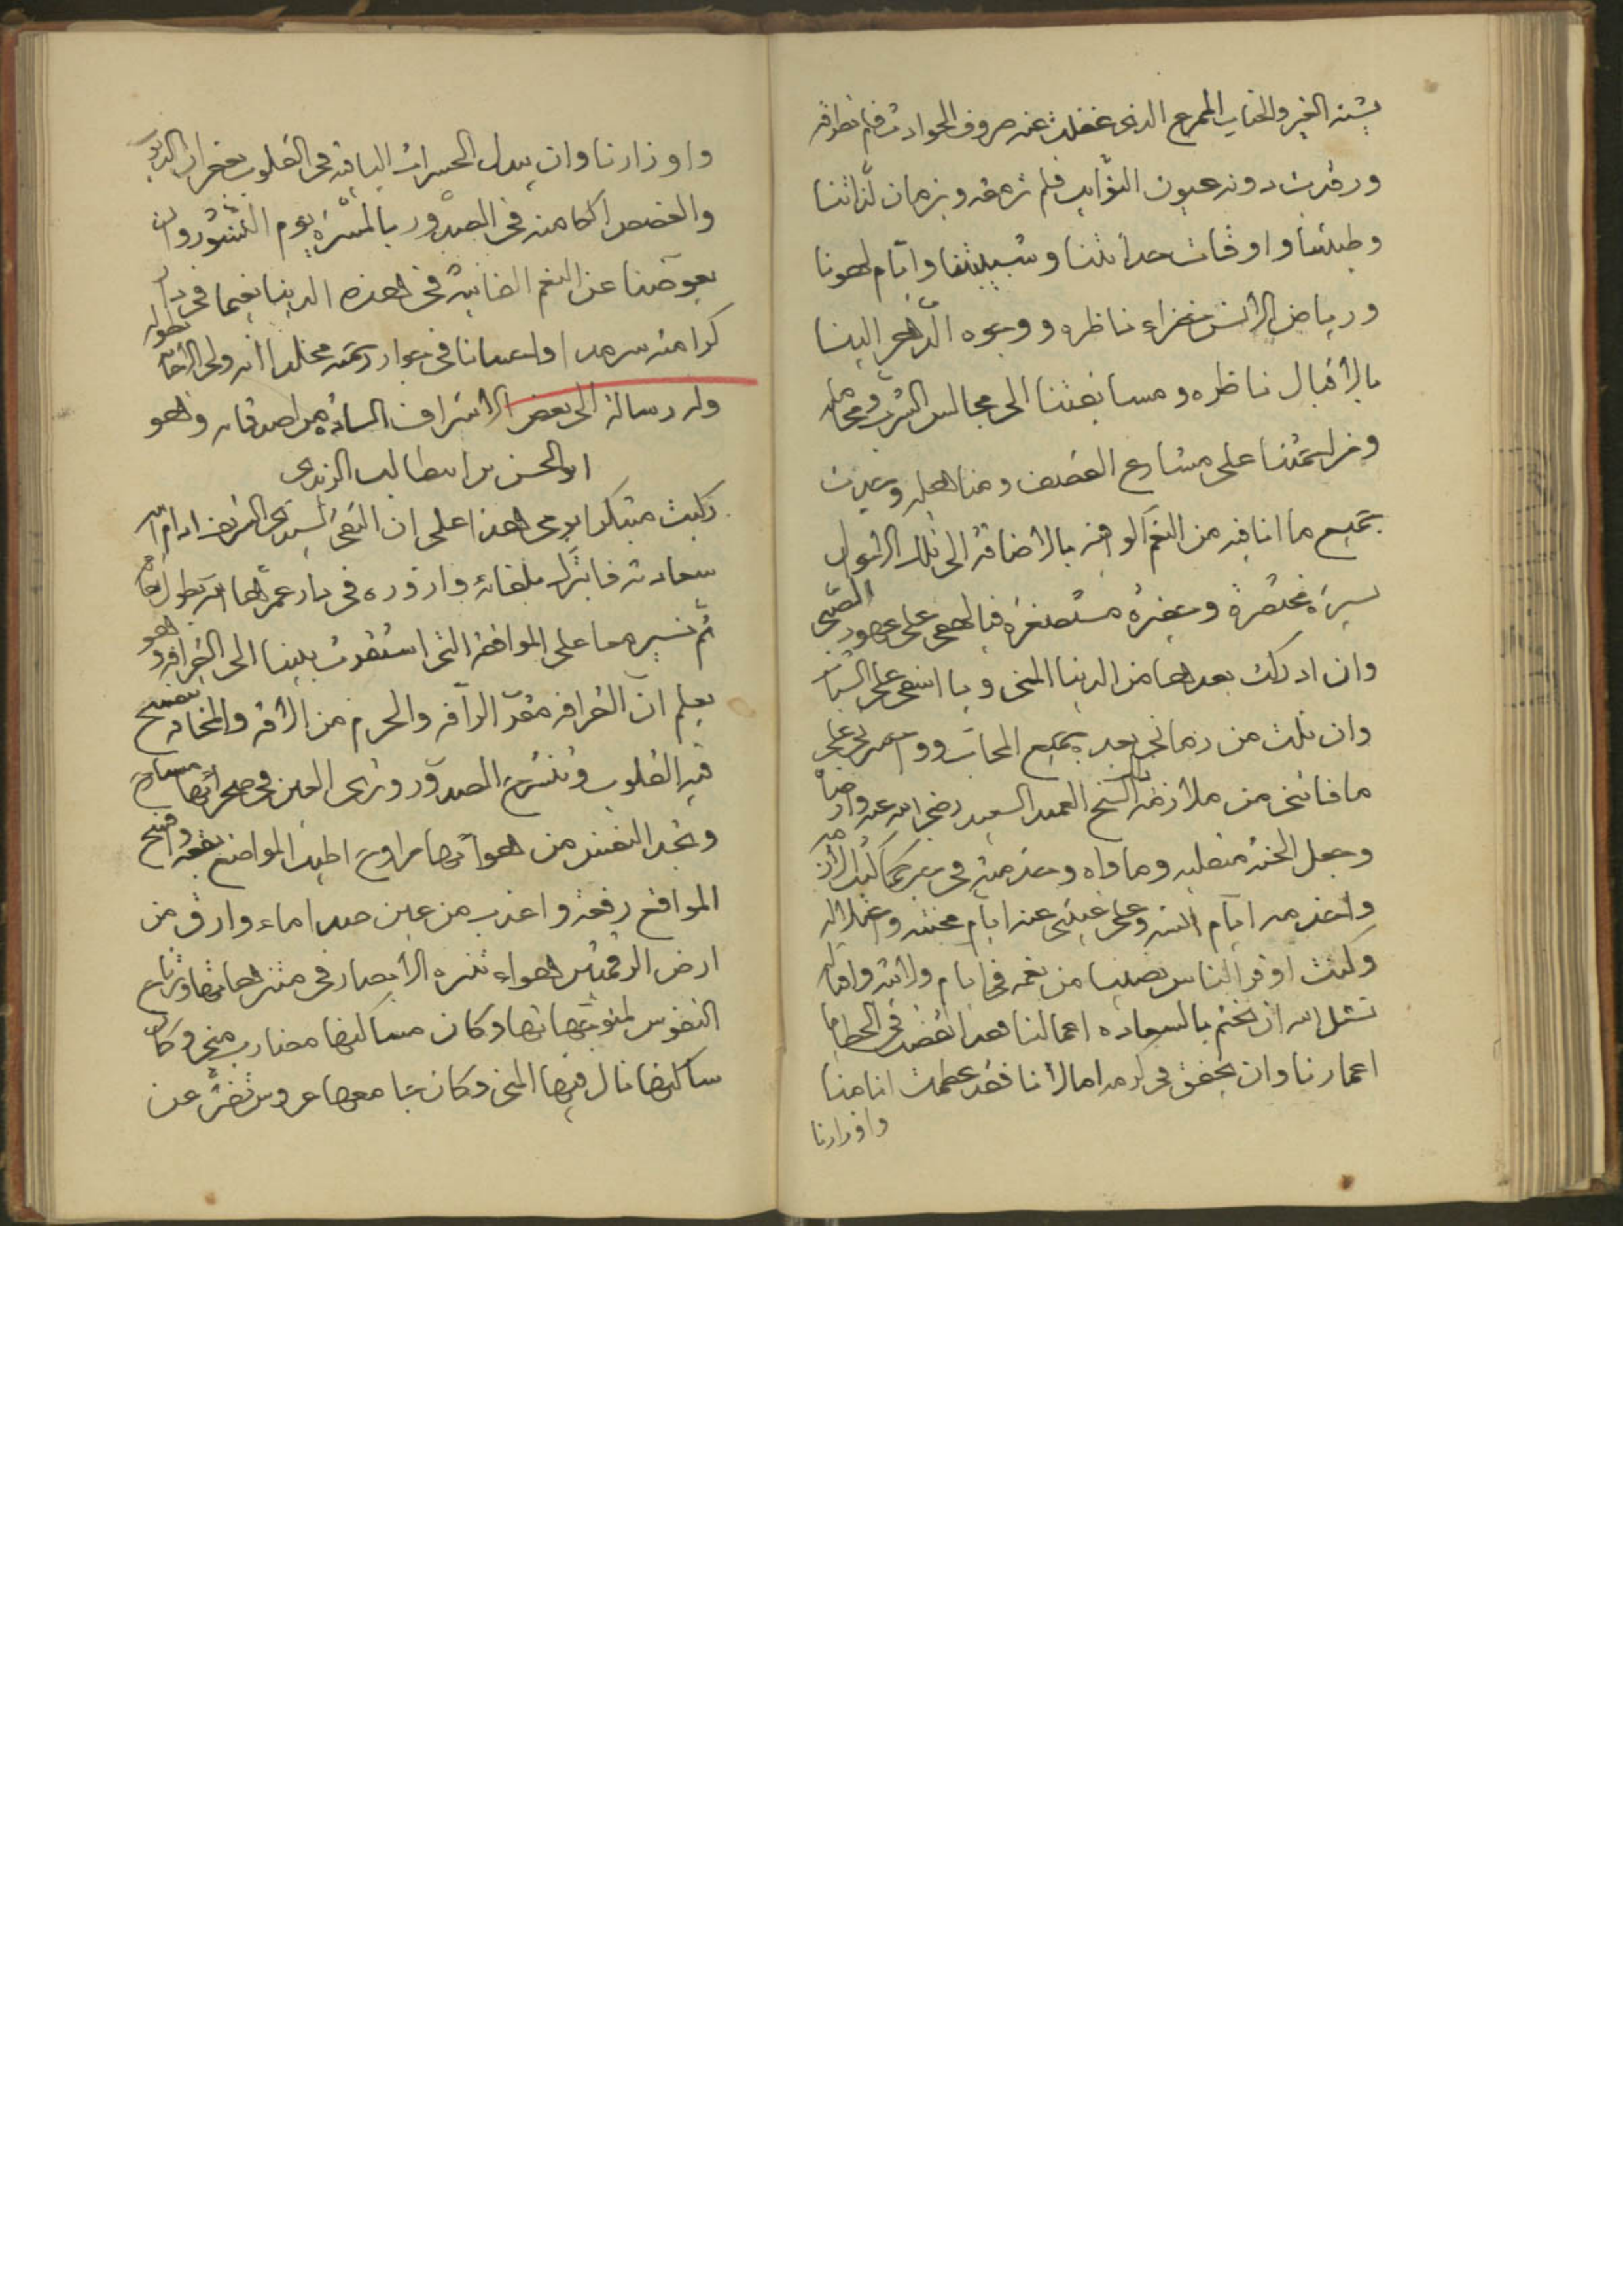 يشنه الغير والجناب الممرع الذى غفلت عنه صروف الحوادث فلم تطرقه
ورقدت دونه عيون النوّايب فلم ترمقه وبزمان لذّاتنا
وطيبتنا واوقات حداثتنا وشبيبتنا وايّام لهونا
ورياض الانس خضراء ناظره ووجوه الدّهر الينا
بالاقبال ناظره ومسابقتنا الى مجالس الشرب ومحامله
ومزاحمتنا على مشارع القصف ومناهله وعددت
جميع ما انا فيه من النعم الوافيه بالاضافة الى تلك الاحوال
يسيرة مختصرة وحقيرة مستصغرة فيا لهفى على عهود الصّبى
وان ادركت بعدها من الدنيا المنى ويا اسفى على الشباب
وان نلت من زمانى بعده جميع المحاب وواحسرتى على
ما فاتنى من ملازمة الشيخ العميد السعيد رضى الله عنه وارضاه
وجعل الجنّه منقلبه وماواه وخدمته فى
ايام انسه وعلى غيبتى عنه ايام محنته
وكنت اوفر الناس نصيبا من نعمه فى ايام ولايته واقباله
نسئل الله ان يختم بالسعاده اعمالنا فقد انقضت فى الخطايا
اعمارنا وان يحقق فى كرمه امالنا فقد عظمت اثامنا
واوزارنا
واوزارنا وان يبدل الحسرات الباقيه فى القلوب بغفران الذنوب
والغصص الكامنه فى الصدور بالمسرّة يوم النشور وان
يعوضنا عن النعم الفانيه فى هذه الدنيا نعيما فى دار
كرامته سرمدا واحسانا فى جوار رحمته مخلدا انه ولى الاجابة بطوله
وله رسالة الى بعض الاشراف السادة من اصدقائه وهو
ابو الحسن بن ابى طالب الزيدى
ركبت مبتكرا يومى هذا على ان القى السيد الشريف ادام الله
سعادته فاتبرّك بلقائه وازوره فى دار عمّرها الله بطول بقائه
ثم نسير معا على الموافقة التى استقرت بيننا الى القرافه وهو
يعلم ان القرافه مقرّ الرافه والحرم من الافه والمخافه تنفسح
فيه القلوب وتنشرح الصدور وترى العين فى صحرائها مسارح
وتجد النفس من هوائها مراوح اطيب المواضع بقعه وافسح
المواقع رقعة واعذب من عين صداء ماء وارق من
ارض الرقمتين هواء تنزه الابصار فى متنزهاتها وترتاح
النفوس لمنوبهاتها وكان مساكنها مضارب منى وكان
ساكنها نال فيها المنى وكان جامعها عروس تفتر عن